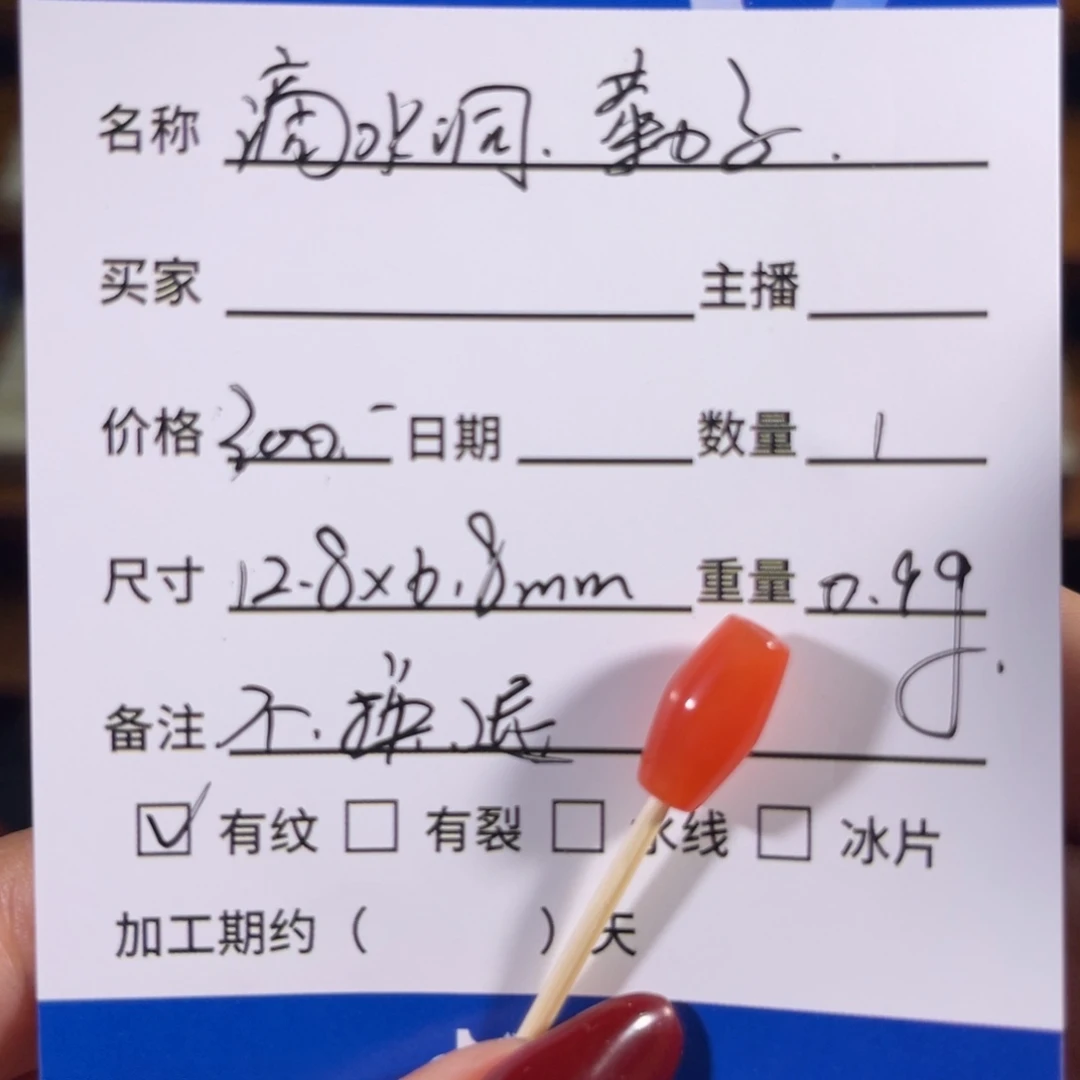 名称 滴水洞.勒子.
买家 主播
价格 300.- 日期 数量 1
尺寸 12.8×6.8mm 重量 0.99.
备注 不.换.退
☑ 有纹 □ 有裂 □ 水线 □ 冰片
加工期约（ ）天